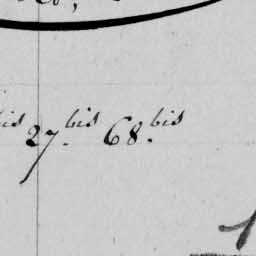 bis 27.bis 68.bis